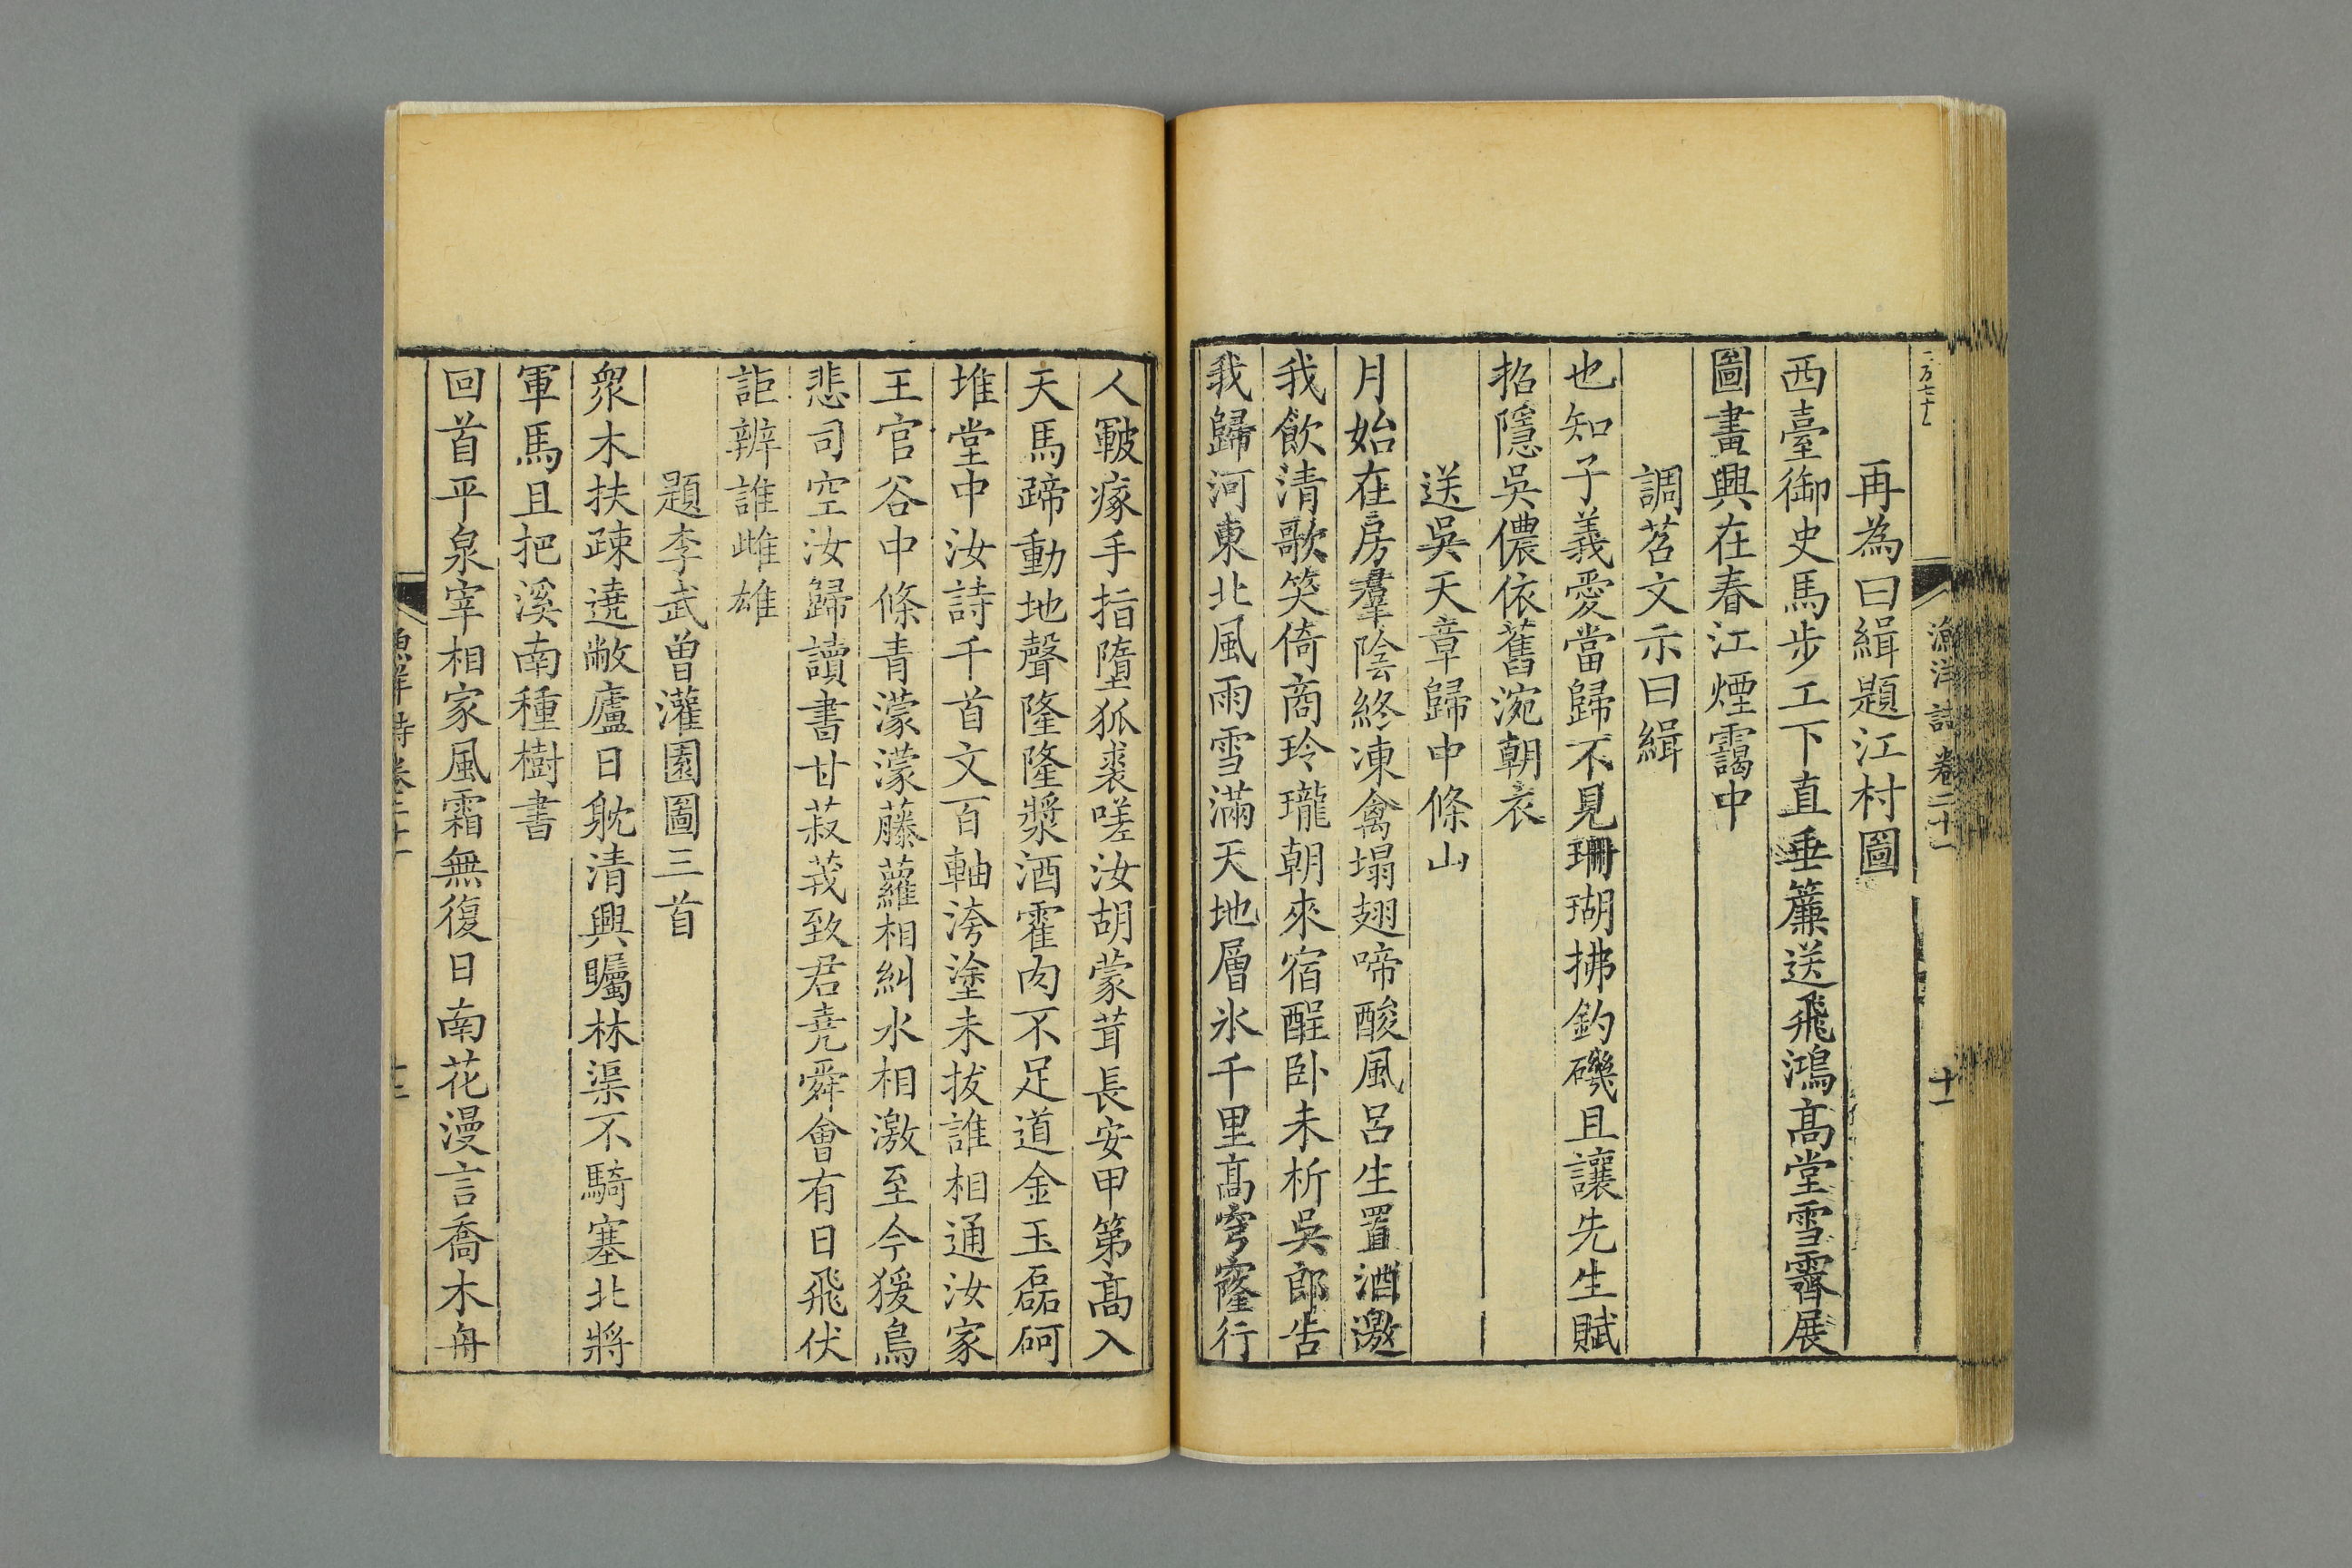 漁洋詩 卷二十一 十一
再為曰緝題江村圖
西臺御史馬步工下直垂簾送飛鴻髙堂雪霽展
圖畫興在春江煙靄中
調苕文示曰緝
也知子義愛當歸不見珊瑚拂釣磯且讓先生賦
招隱吳儂依舊涴朝衣
送吳天章歸中條山
月始在房羣陰終凍禽塌翅啼酸風呂生置酒邀
我飲清歌笑倚商玲瓏朝來宿酲卧未析吳郎告
我歸河東北風雨雪滿天地層氷千里髙穹窿行
人皸瘃手指墮狐裘嗟汝胡蒙茸長安甲第髙入
天馬蹄動地聲隆隆漿酒霍肉不足道金玉磊砢
堆堂中汝詩千首文百軸洿塗未拔誰相通汝家
王官谷中條青濛濛藤蘿相糾水相激至今猨鳥
悲司空汝歸讀書甘菽莪致君堯舜會有日飛伏
詎辨誰雌雄
題李武曾灌園圖三首
衆木扶疎遶敝廬日躭清興矚林渠不騎塞北將
軍馬且把溪南種樹書
回首平泉宰相家風霜無復日南花漫言喬木舟